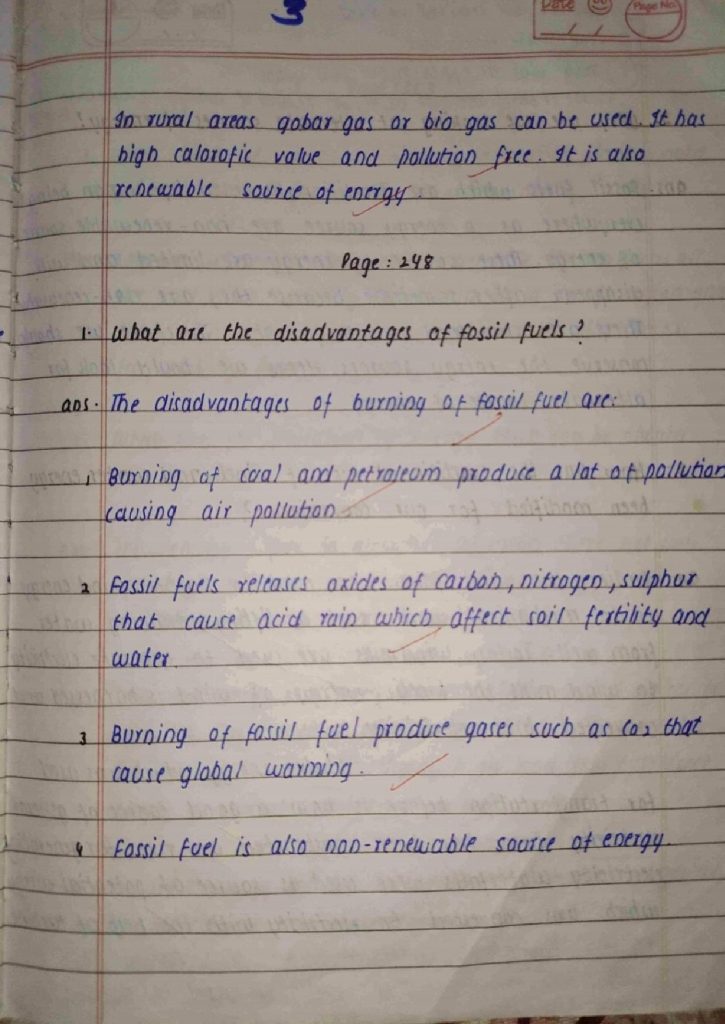 3
Date
Page No.
In rural areas gobar gas or bio gas can be used. It has
high calorofic value and pollution free. It is also
renewable source of energy.
Page : 248
1. What are the disadvantages of fossil fuels?
ans. The disadvantages of burning of fossil fuel are:
1 Burning of coal and petroleum produce a lot of pollution
causing air pollution
2 Fossil fuels releases oxides of carbon, nitrogen, sulphur
that cause acid rain which affect soil fertility and
water.
3 Burning of fossil fuel produce gases such as CO2 that
cause global warming.
4 Fossil fuel is also non-renewable source of energy.